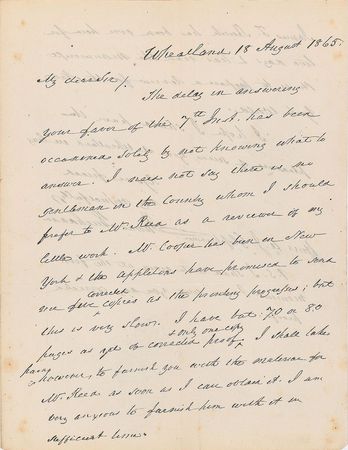 Wheatland 18 August 1865.
My dear Sir/
The delay in answering
your favor of the 7th Inst. has been
occasioned solely by not knowing what to
answer. I need not say there is no
gentleman in the Country whom I should
prefer to Mr. Reed as a reviewer of my
little work. Mr. Cooper has been in New
York & the Appletons have promised to send
me five corrected copies as the printing progresses; but
this is very slow. I have but 70 or 80
pages as yet of corrected proof & only one copy. I shall take
care, however, to furnish you with the material for
Mr. Reed as soon as I can obtain it. I am
very anxious to furnish him with it in
sufficient time.